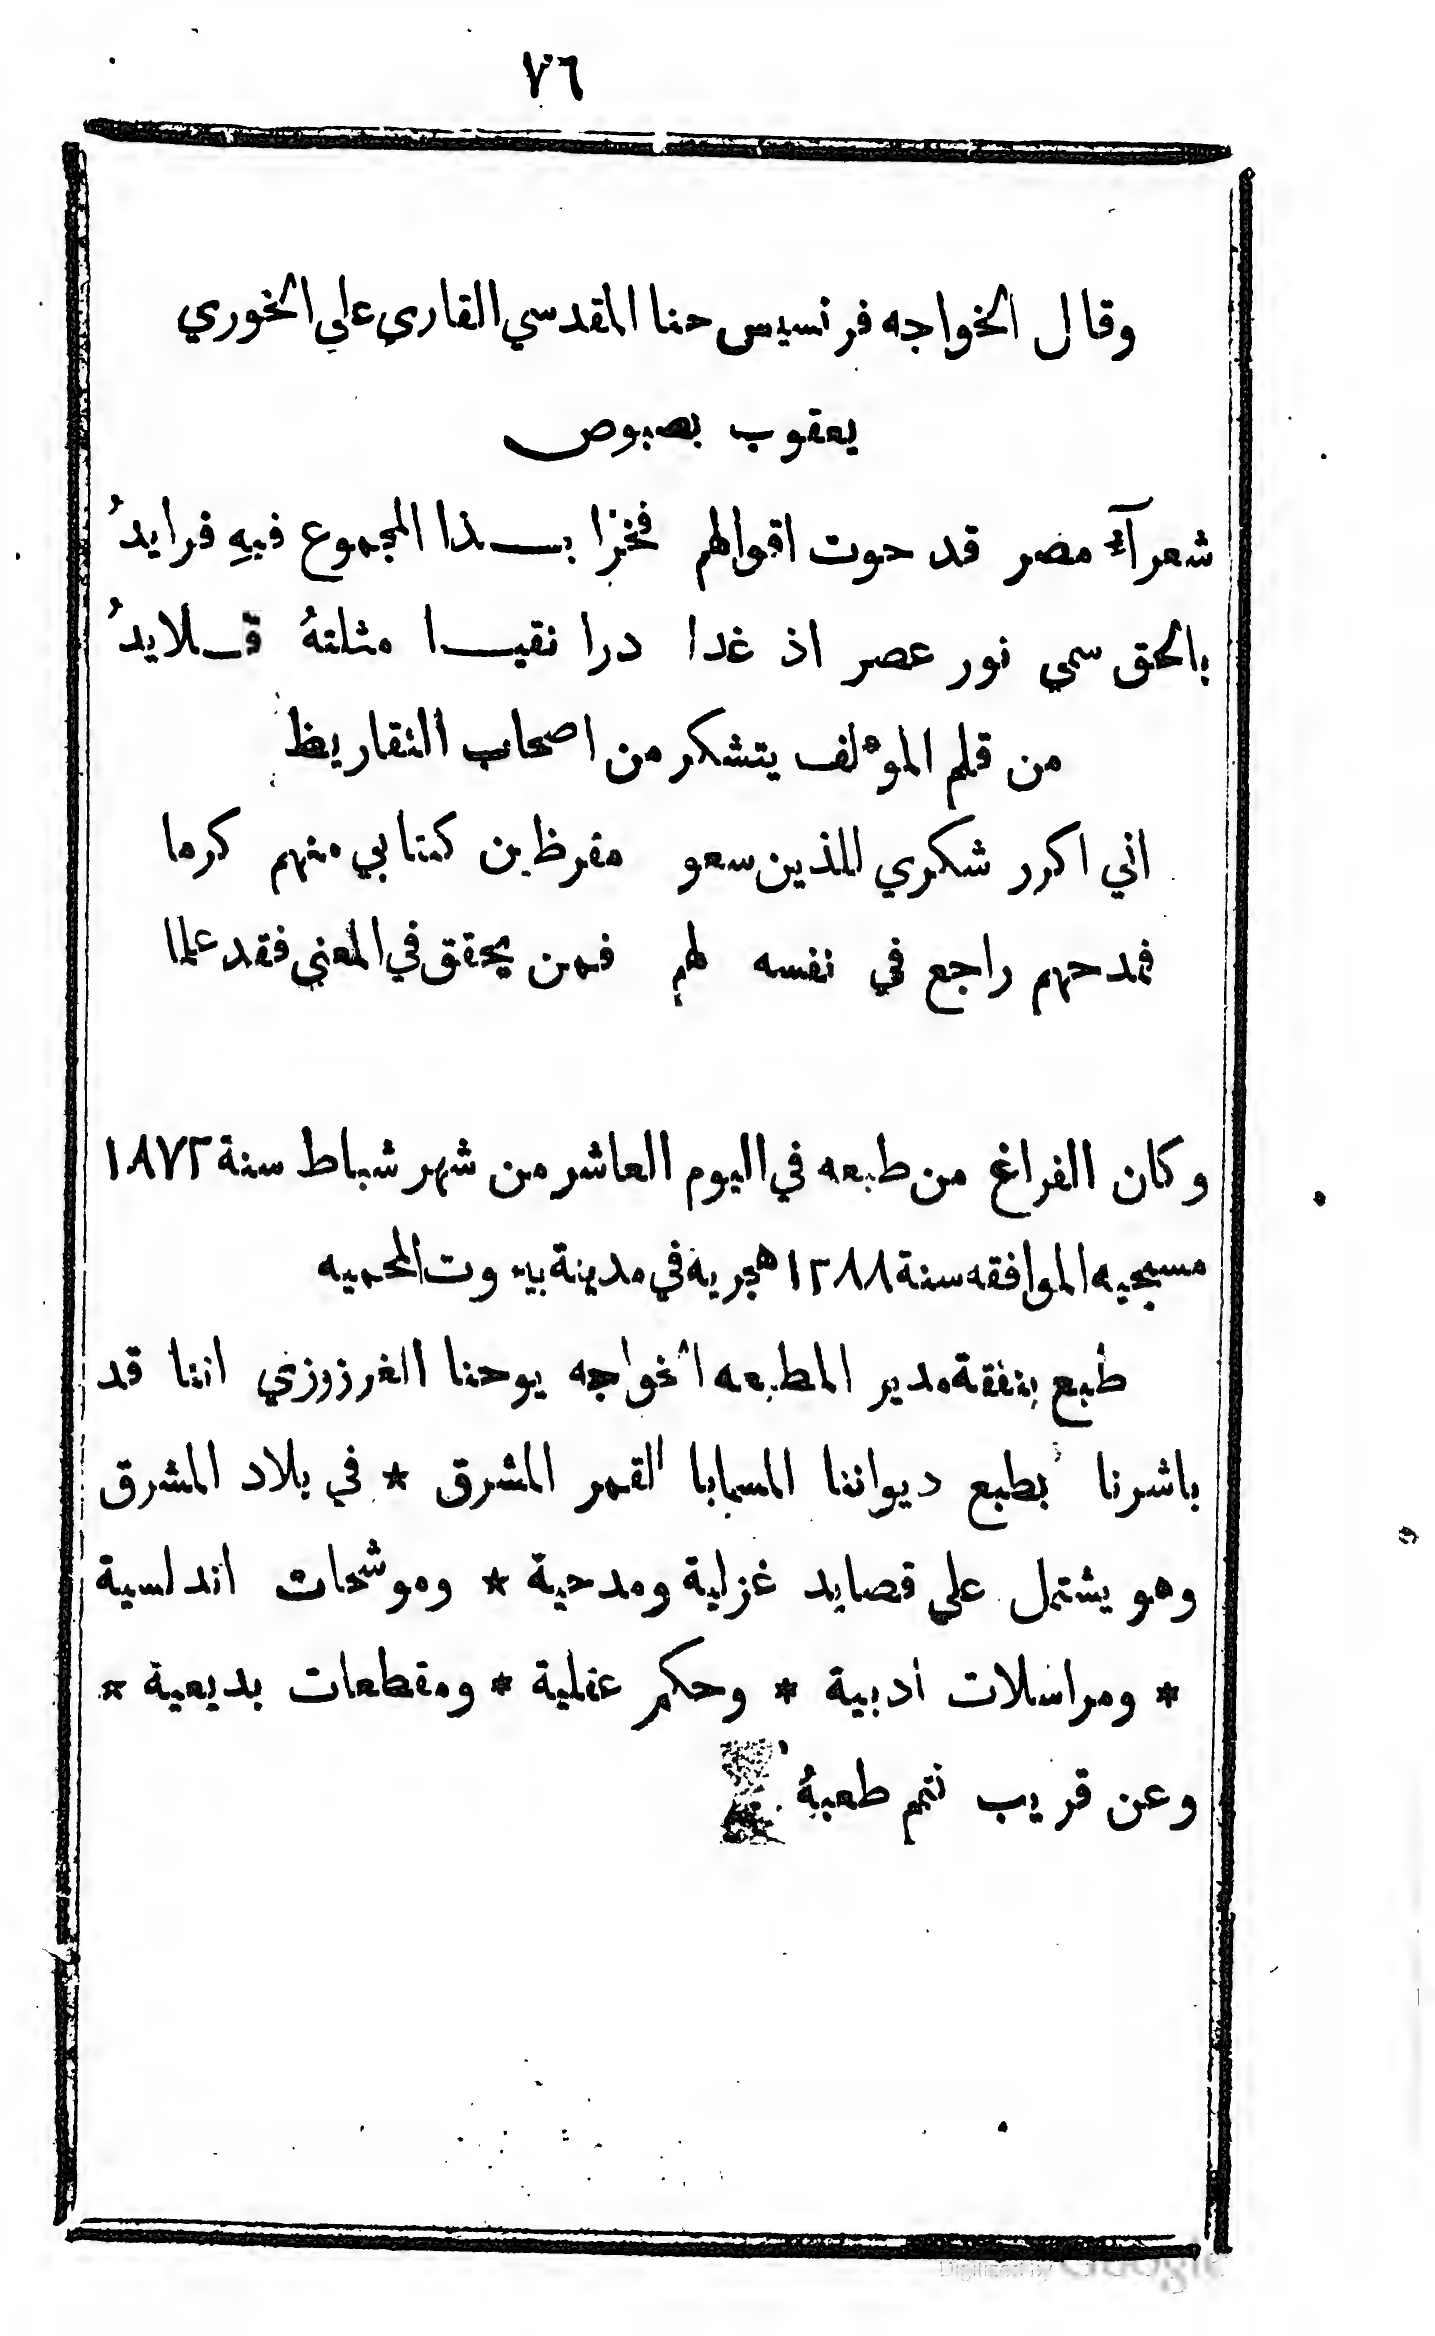 ٧٦
وقال الخواجه فرنسيس حنا المقدسي القاري علي الخوري
يعقوب بصبوص
شعرآء مصر قد حوت اقوالهم فخرا بـــذا المجموع فيهِ فرايدُ
بالحق سمي نور عصر اذ غدا درا نقيـــا مثلتهُ قـــلايدُ
من قلم الموءلف يتشكر من اصحاب التقاريظ
اني اكرر شكري للذين سعو مقرظين كتابي منهم كرما
فمدحهم راجع في نفسه لهم فمن يحقق في المعني فقد علما
وكان الفراغ من طبعه في اليوم العاشر من شهر شباط سنة ١٨٧٢
مسيحيه الموافقه سنة ١٢٨٨ هجرية في مدينة بيروت المحميه
طُبع بنفقة مدير المطبعه الخواجه يوحنا الغرزوزي اننا قد
باشرنا بطبع ديواننا المسمابا القمر المشرق * في بلاد المشرق
وهو يشتمل علي قصايد غزلية ومدحية * وموشحات اندلسية
* ومراسلات أدبية * وحكم عقلية * ومقطعات بديعية *
وعن قريب نتمم طعبهُ
Digitized by Google